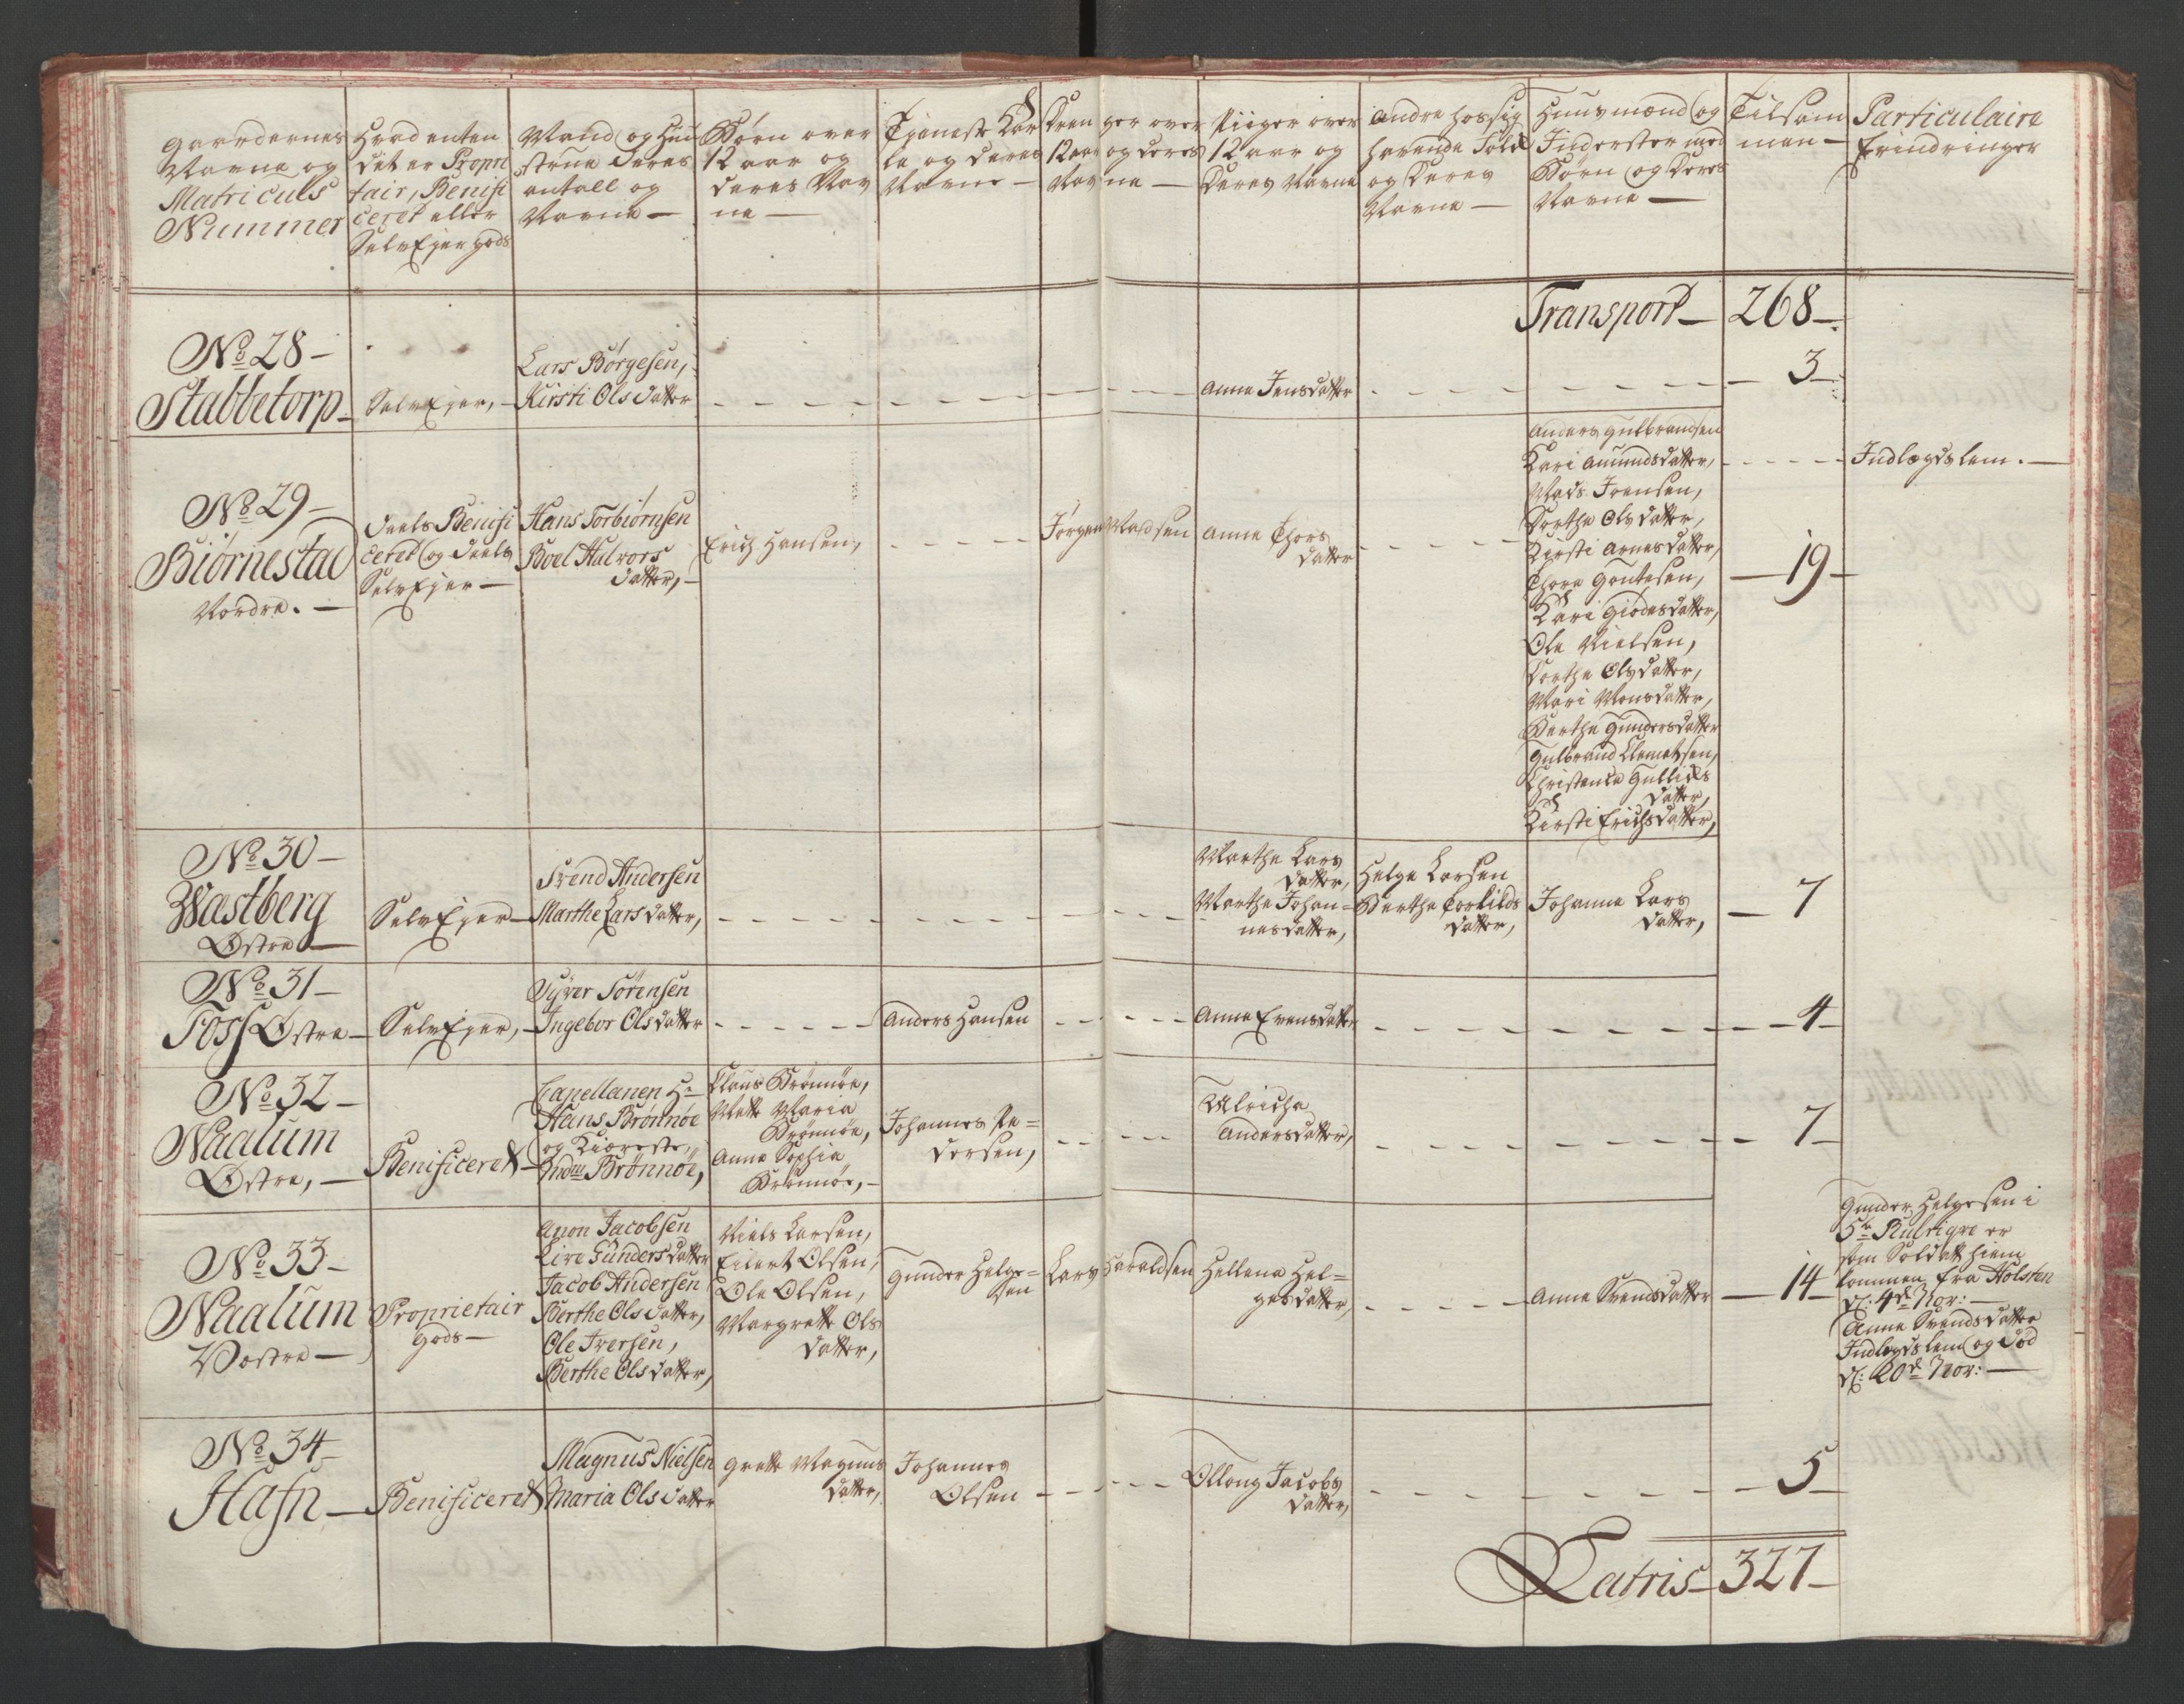 Gaardernes
Navne og
Matriculs
Nummer
Hvad enten
det er Propri
tair, Benifi
ceret eller
SelvEjer gods
Mand og Hu
struе deres
antall og
Navne —
Børn over
12 aar og
deres Nav
ne —
Tjeneste Kar
le og deres
Navne —
Drenger over
12 aar og deres
Navne —
Piiger over
12 aar og
deres Navne
Andre hos sig
havende Folk
og deres
Navne —
Huusmænd og
Inderster med
Børn og deres
Navne —
Tilsam
men —
Particulaire
Erindringer
Transport — 268 —
No 28 —
Stabbetorp —
SelvEjer, —
Lars Børgesen,
Kirsti Olsdatter
Anne Jensdatter
3 —
No 29 —
Biørnestad
Nordre. —
deels Benifi
ceret og deels
SelvEjer —
Hans Torbiørnsen
Boel Halvors
datter, —
Erich Hansen,
Jørgen Madsen
Anne Thors
datter
Anders Gulbrandsen
Kari Amundsdatter,
Mads Joensen,
Dorthe Olsdatter,
Kirsti Arnesdatter,
Thore
Kari
Ole Nielsen,
Dorthe Olsdatter,
Mari Monsdatter,
Berthe Gundersdatter
Gulbrand Clemetsen,
Christence Gulliks
datter,
Kirsti Erichsdatter,
— 19 —
Indlægdslem. —
No 30 —
Wastberg
Østre —
SelvEjer —
Svend Andersen
Marthe Larsdatter,
Marthe Lars
datter,
Marthe Johan=
nesdatter,
Helge Larsen
Berthe Torkilds
datter,
Johanne Lars
datter,
— 7
No 31 —
Foss Østre —
SelvEjer, —
Syver Sørensen
Ingebor Olsdatter
Anders Hansen
Anne Evensdatter
4 —
No 32 —
Naalum
Østre, —
Benificeret —
Capellanen Hr
Hans Brønnøe
og Kiæreste,
Brønnøe,
Claus Brønnøe,
Mette Maria
Brønnøe,
Anne Sophia
Brønnøe, —
Johannes Pe=
dersen,
Ulricha
Andersdatter,
7 —
No 33 —
Naalum
Vestre —
Proprietair
Gods —
Amon Jacobsen
Live Gundersdatter
Jacob Andersen
Berthe Olsdatter,
Ole Iversen,
Berthe Olsdatter,
Niels Larsen,
Eilert Olsen,
Ole Olsen,
Margrette Ols
datter,
Gunder Helge=
sen
Lars Haraldsen
Hellena Hel=
gesdatter,
Anne Svendsdatter
— 14 —
Gunder Helgesen i
5te Rubriqve er
som Soldatt hiem
kommen fra Holsten
d: 4de Nov: —
Anne Svendsdatter
Indlægdslem og død
d: 20de Nov: —
No 34 —
Hafn —
Benificeret
Magnus Nielsen
Maria Olsdatter
Grette Magnus
datter,
Johannes
Olsen
Olloug Jacobs
datter,
5 —
Latris — 327 —